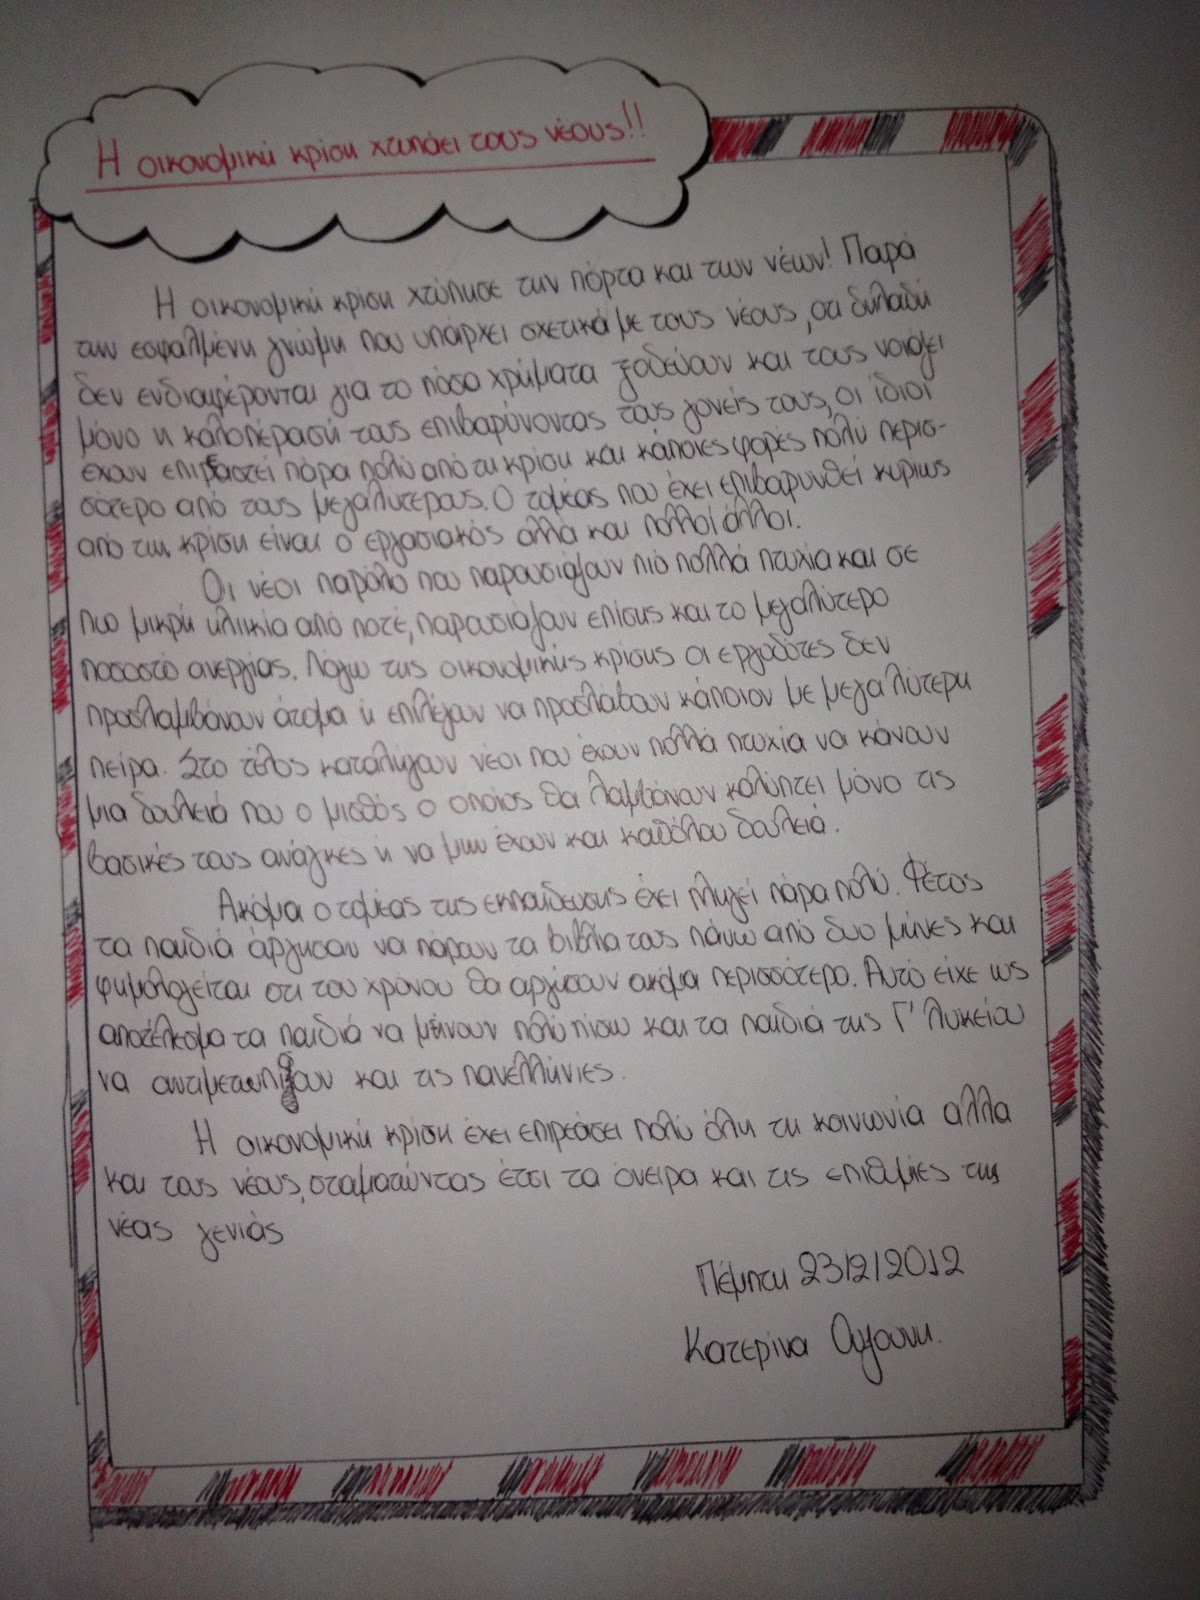 Η οικονομική κρίση χτυπάει τους νέους!!
Η οικονομική κρίση χτύπησε την πόρτα και των νέων! Παρά
την εσφαλμένη γνώμη που υπάρχει σχετικά με τους νέους, ότι δηλαδή
δεν ενδιαφέρονται για το πόσο χρήματα ξοδεύουν και τους νοιάζει
μόνο η καλοπέρασή τους επιβαρύνοντας τους γονείς τους, οι ίδιοι
έχουν επηρεαστεί πάρα πολύ από τη κρίση και κάποιες φορές πολύ περισ-
σότερο από τους μεγαλύτερους. Ο τομέας που έχει επιβαρυνθεί κυρίως
από την κρίση είναι ο εργασιακός αλλά και πολλοί άλλοι.
Οι νέοι παρόλο που παρουσιάζουν πιο πολλά πτυχία και σε
πιο μικρή ηλικία από ποτέ, παρουσιάζουν επίσης και το μεγαλύτερο
ποσοστό ανεργίας. Λόγω της οικονομικής κρίσης οι εργοδότες δεν
προσλαμβάνουν άτομα ή επιλέγουν να προσλάβουν κάποιον με μεγαλύτερη
πείρα. Στο τέλος καταλήγουν νέοι που έχουν πολλά πτυχία να κάνουν
μια δουλειά που ο μισθός ο οποίος θα λαμβάνουν καλύπτει μόνο τις
βασικές τους ανάγκες ή να μην έχουν και καθόλου δουλειά.
Ακόμα ο τομέας της εκπαίδευσης έχει πληγεί πάρα πολύ. Φέτος
τα παιδιά άργησαν να πάρουν τα βιβλία τους πάνω από δυο μήνες και
φημολογείται ότι του χρόνου θα αργήσουν ακόμα περισσότερο. Αυτό είχε ως
αποτέλεσμα τα παιδιά να μείνουν πολύ πίσω και τα παιδιά της Γ' Λυκείου
να αντιμετωπίζουν και τις πανελλήνιες.
Η οικονομική κρίση έχει επιρεάσει πολύ όλη τη κοινωνία αλλα
και τους νέους, σταματώντας έτσι τα όνειρα και τις επιθυμίες της
νέας γενιάς
Πέμπτη 23/2/2012
Κατερίνα